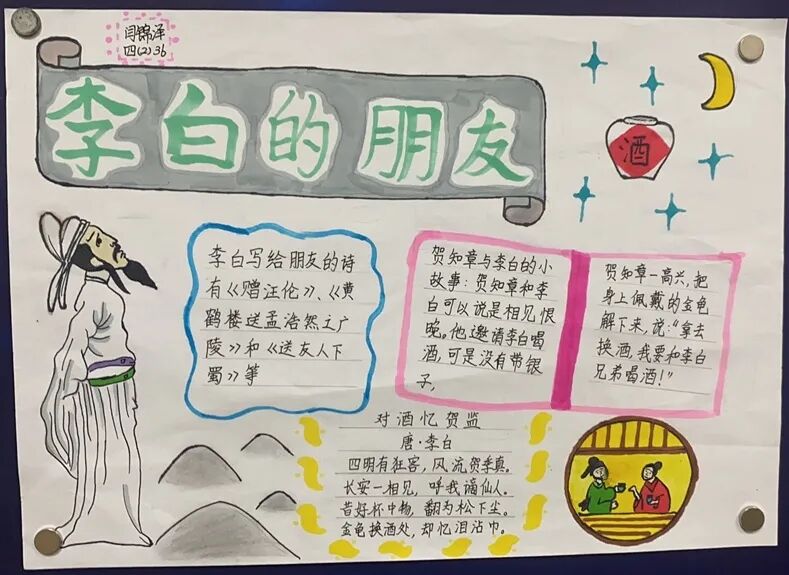 闫锦泽
四(2)36
李白的朋友
酒
李白写给朋友的诗
有《赠汪伦》、《黄
鹤楼送孟浩然之广
陵》和《送友人下
蜀》等
贺知章与李白的小
故事:贺知章和李
白可以说是相见恨
晚。他邀请李白喝
酒,可是没有带银
子,
贺知章一高兴,把
身上佩戴的金龟
解下来,说:"拿去
换酒,我要和李白
兄弟喝酒!"
对酒忆贺监
唐·李白
四明有狂客,风流贺季真。
长安一相见,呼我谪仙人。
昔好杯中物,翻为松下尘。
金龟换酒处,却忆泪沾巾。